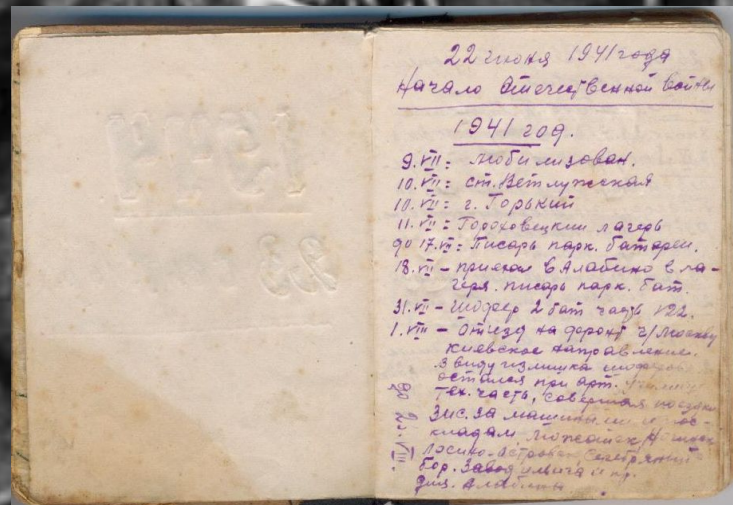 22 июня 1941 года
Начало Отечественной войны
1941 год.
9.VII = мобилизован.
10.VII = ст. Ветлужская
10.VII = г. Горький
11.VII = Гороховецкий лагерь
до 17.VII = Писарь парк. батареи.
18.VII – приехал в Алабино в ла-
геря. писарь парк. бат.
31.VII – шофер 2 бат часть 122.
1.VIII – Отъезд на фронт ч/Москву
киевское направление.
Ввиду излишка
остался при арт.
Тех. часть, совершая поездки
до 25.VIII. Зис. за машинами и по с-
кладам. Можайск,
Лосино-Островск Серебряный
бор. Завод Ильича и пр.
Алабино